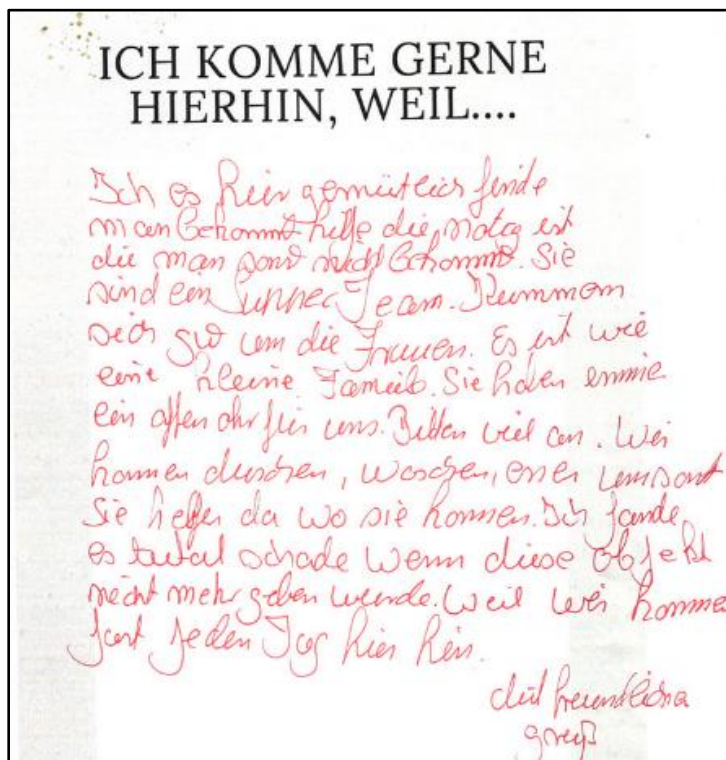 ICH KOMME GERNE
HIERHIN, WEIL....
Ich es hier gemütlich finde
man bekommt hilfe die nötig ist
die man sonst nicht bekommt. Sie
sind ein Team. Kümmern
sich gut um die Frauen. Es ist wie
eine kleine Sie haben immer
ein offen ohr für uns. Bitten viel an. Wir
können duschen, waschen, essen umsonst
Sie helfen da wo sie können. Ich fände
es total schade wenn diese objekt
nicht mehr geben würde. Weil wir kommen
fast jeden Tag hier hin.
mit freundlicher
gruß